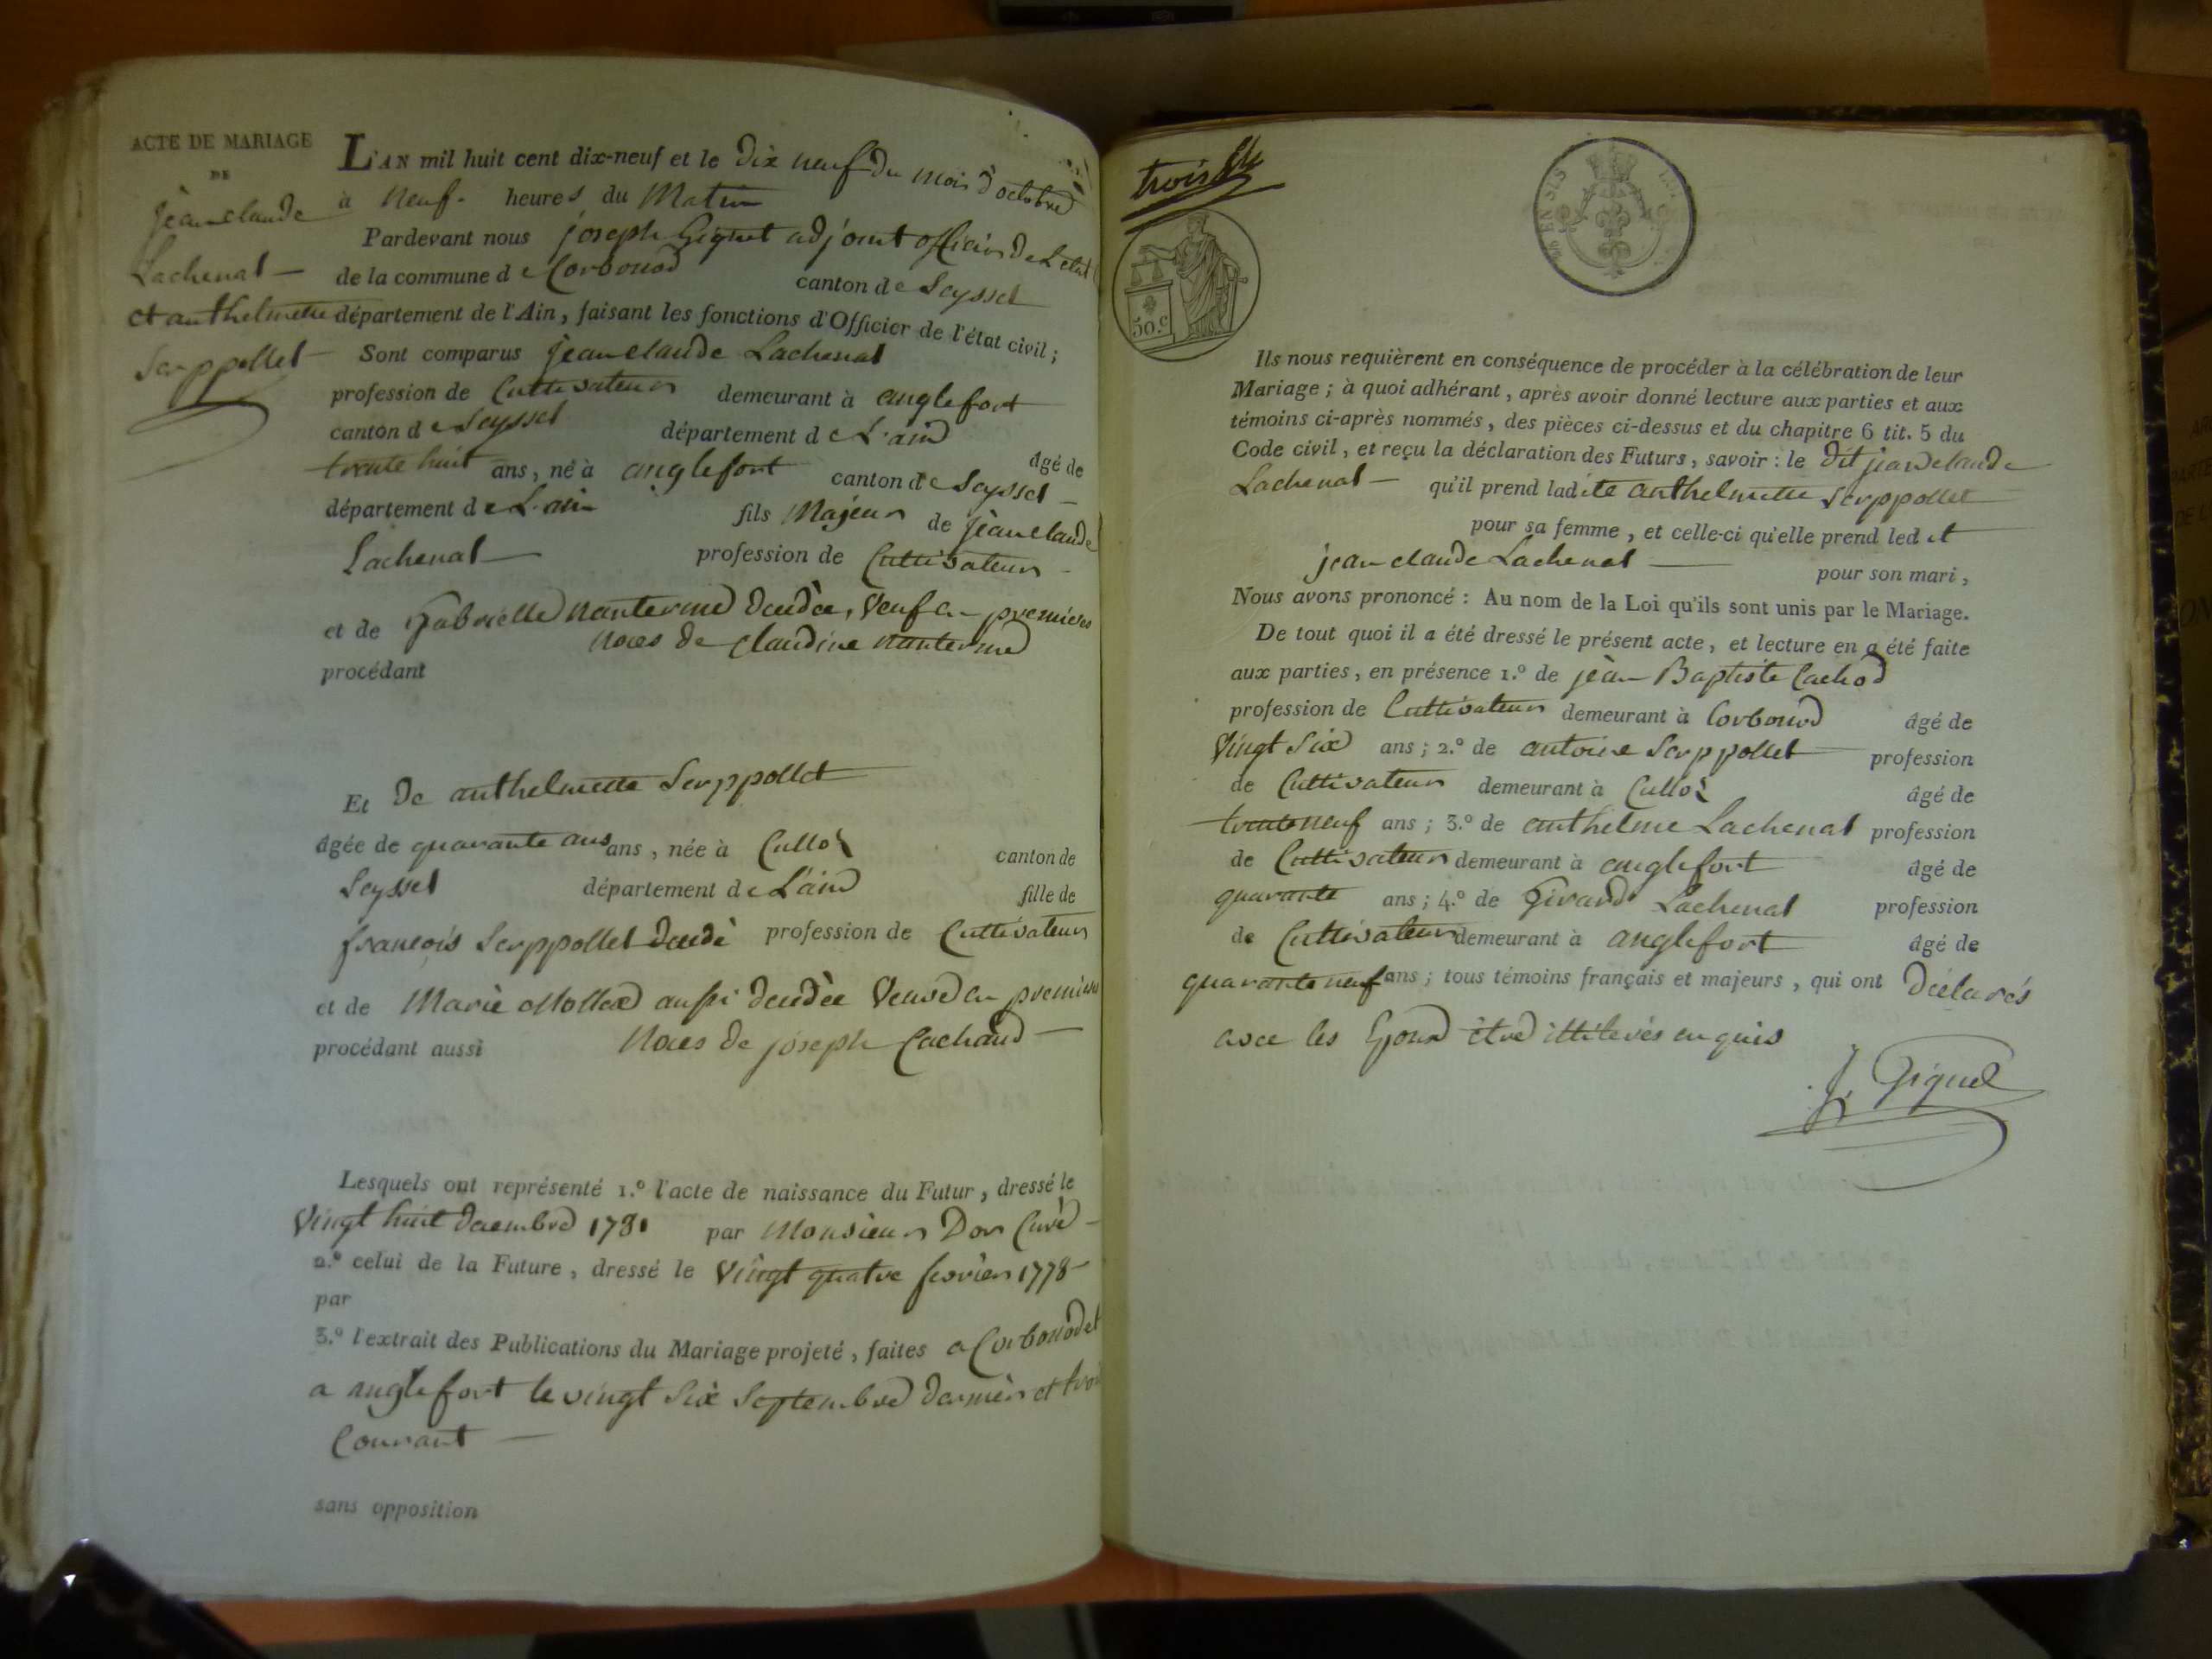 ACTE DE MARIAGE
DE
jean claude
Lachenal
et anthelmette
Serppollet
L'AN mil huit cent dix-neuf et le dix neuf du mois d'octobre
à neuf heures du Matin
Pardevant nous joseph Giguet adjoint officier de L'etat
de la commune de Corbonod canton de Seyssel
département de l'Ain, faisant les fonctions d'Officier de l'état civil;
Sont comparus jean claude Lachenal
profession de Cultivateur demeurant à anglefort
canton de Seyssel département de L'ain âgé de
trente huit ans, né à anglefort canton de Seyssel
département de L'ain fils Majeur de jean claude
Lachenal profession de Cultivateur
et de Gabrielle nanterme decedée, veuf en premieres
procédant noces de Claudine nanterme
Et de anthelmette Serppollet
âgée de quarante ans ans, née à Culloz canton de
Seyssel département de L'ain fille de
françois Serppollet decedé profession de Cultivateur
et de Marie Mollex aussi decedée veuve en premieres
procédant aussi Noces de joseph Cachaud
Lesquels ont représenté 1.º l'acte de naissance du Futur, dressé le
vingt huit decembre 1781 par Monsieur Don Curé
2.º celui de la Future, dressé le vingt quatre fevrier 1778
par
3.º l'extrait des Publications du Mariage projeté, faites a Corbonod et
a anglefort le vingt six septembre dernier et trois
Courant
sans opposition
trois
50.c
Ils nous requièrent en conséquence de procéder à la célébration de leur
Mariage; à quoi adhérant, après avoir donné lecture aux parties et aux
témoins ci-après nommés, des pièces ci-dessus et du chapitre 6 tit. 5 du
Code civil, et reçu la déclaration des Futurs, savoir: le dit jean claude
Lachenal qu'il prend ladite anthelmette Serppollet
pour sa femme, et celle-ci qu'elle prend led it
jean claude Lachenal pour son mari,
Nous avons prononcé: Au nom de la Loi qu'ils sont unis par le Mariage.
De tout quoi il a été dressé le présent acte, et lecture en a été faite
aux parties, en présence 1.º de jean Baptiste Cachod
profession de Cultivateur demeurant à Corbonod âgé de
vingt six ans; 2.º de antoine Serppollet profession
de Cultivateur demeurant à Culloz âgé de
trente neuf ans; 3.º de anthelme Lachenal profession
de Cultivateur demeurant à anglefort âgé de
quarante ans; 4.º de Girard Lachenal profession
de Cultivateur demeurant à anglefort âgé de
quarante neuf ans; tous témoins français et majeurs, qui ont déclarés
avec les Epoux être illiterés enquis
J. Giguet